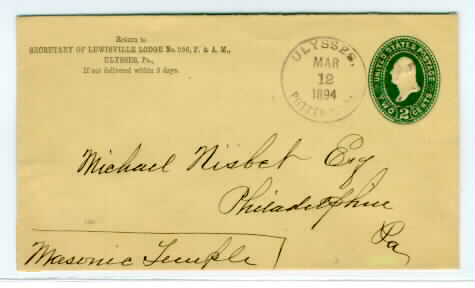 Return to
SECRETARY OF LEWISVILLE LODGE No. 556, F. & A. M.,
ULYSSES, PA.,
If not delivered within 5 days.
ULYSSES,
MAR
12
1894
UNITED STATES POSTAGE
TWO 2 CENTS
Michael Nisbet Esq
Philadelphia
Pa
Masonic Temple